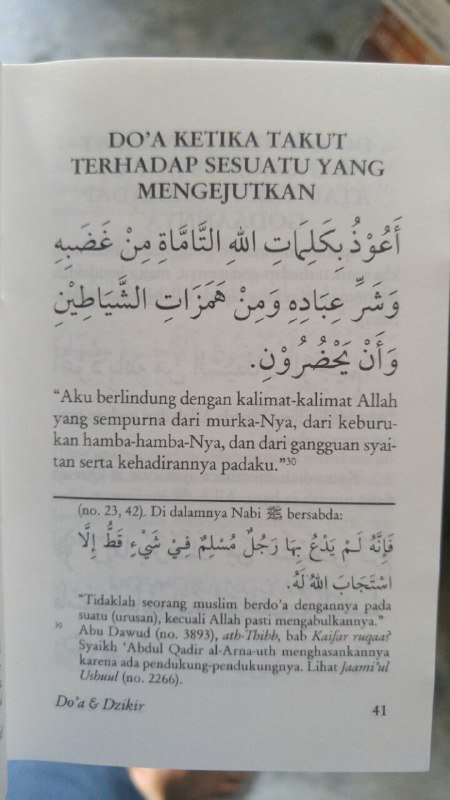 DO'A KETIKA TAKUT
TERHADAP SESUATU YANG
MENGEJUTKAN
أَعُوْذُ بِكَلِمَاتِ اللهِ التَّامَّاةِ مِنْ غَضَبِهِ
وَشَرِّ عِبَادِهِ وَمِنْ هَمَزَاتِ الشَّيَاطِيْنِ
وَأَنْ يَحْضُرُوْنِ.
"Aku berlindung dengan kalimat-kalimat Allah
yang sempurna dari murka-Nya, dari keburu-
kan hamba-hamba-Nya, dan dari gangguan syai-
tan serta kehadirannya padaku."30
(no. 23, 42). Di dalamnya Nabi ﷺ bersabda:
فَإِنَّهُ لَمْ يَدْعُ بِهَا رَجُلٌ مُسْلِمٌ فِيْ شَيْءٍ قَطُّ إِلَّا
اسْتَجَابَ اللهُ لَهُ.
"Tidaklah seorang muslim berdo'a dengannya pada
suatu (urusan), kecuali Allah pasti mengabulkannya."
30 Abu Dawud (no. 3893), ath-Thibb, bab Kaifar ruqaa?
Syaikh 'Abdul Qadir al-Arna-uth menghasankannya
karena ada pendukung-pendukungnya. Lihat Jaami'ul
Ushuul (no. 2266).
Do'a & Dzikir 41